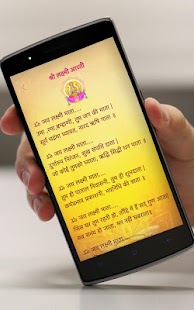 श्री लक्ष्मी आरती
ॐ जय लक्ष्मी माता....
उमा ,रमा,ब्रम्हाणी, तुम जग की माता |
सूर्य चद्रंमा ध्यावत, नारद ऋषि गाता ॥
ॐ जय लक्ष्मी माता....
दुर्गारुप निरंजन, सुख संपत्ति दाता |
जो कोई तुमको ध्याता, ऋद्धि सिद्धी धन पाता ॥
ॐ जय लक्ष्मी माता....
तुम ही पाताल निवासनी, तुम ही शुभदाता |
कर्मप्रभाव प्रकाशनी, भवनिधि की त्राता ॥
ॐ जय लक्ष्मी माता....
जिस घर तुम रहती हो, ताँहि में हैं सद् गुण आता|
सब संभव हो जाता, मन नहीं घबराता॥
ॐ जय लक्ष्मी माता....